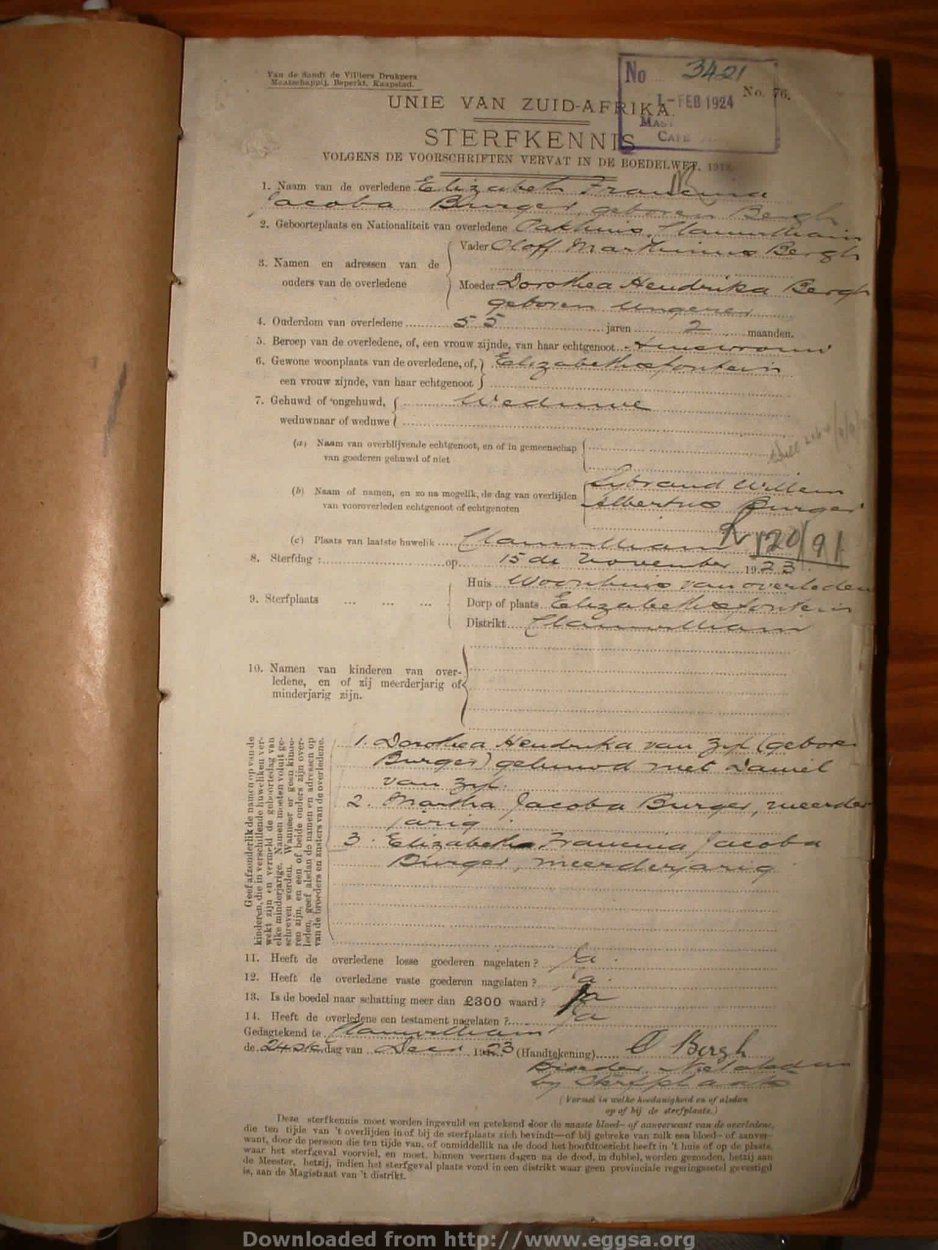 Van de Sandt de Villiers Drukpers
Maatschappij, Beperkt, Kaapstad.
No 3421
1 - FEB 1924
No. 76.
UNIE VAN ZUID-AFRIKA.
STERFKENNIS
VOLGENS DE VOORSCHRIFTEN VERVAT IN DE BOEDELWET, 1913.
1. Naam van de overledene Elizabeth Francina
Jacoba Burger, geboren Bergh
2. Geboorteplaats en Nationaliteit van overledene Pakhuis, Clanwilliam
3. Namen en adressen van de ouders van de overledene
Vader Oloff Marthinus Bergh
Moeder Dorothea Hendrika Bergh
geboren
4. Ouderdom van overledene 55 jaren 2 maanden.
5. Beroep van de overledene, of, een vrouw zijnde, van haar echtgenoot
6. Gewone woonplaats van de overledene, of, Elizabethsfontein
een vrouw zijnde, van haar echtgenoot
7. Gehuwd of ongehuwd, Weduwe
weduwnaar of weduwe
(a) Naam van overblijvende echtgenoot, en of in gemeenschap
van goederen gehuwd of niet
(b) Naam of namen, en zo na mogelik, de dag van overlijden
van vooroverleden echtgenoot of echtgenoten
Sybrand Willem
Albertus Burger
(c) Plaats van laatste huwelik Clanwilliam
120/91
8. Sterfdag : op 15de November 1923
9. Sterfplaats
Huis Woonhuis van overleden
Dorp of plaats Elizabethsfontein
Distrikt Clanwilliam
10. Namen van kinderen van over-
ledene, en of zij meerderjarig of
minderjarig zijn.
Geef afzonderlik de namen op van de
kinderen, die in verschillende huweliken ver-
wekt zijn en vermeld de geboortedag van
elke minderjarige. Namen moeten voluit ge-
schreven worden. Wanneer er geen kinde-
ren zijn, en een of beide ouders zijn over-
leden, geef alsdan de namen en adressen op
van de broeders en zusters van de overledene.
1. Dorothea Hendrika van Zyl (gebore
Burger) gehuwd met Daniel
van Zyl.
2. Martha Jacoba Burger, meerder
jarig
3. Elizabeth Francina Jacoba
Burger, meerderjarig
11. Heeft de overledene losse goederen nagelaten ? Ja
12. Heeft de overledene vaste goederen nagelaten ? Ja
13. Is de boedel naar schatting meer dan £300 waard ? Ja
14. Heeft de overledene een testament nagelaten ? Ja
Gedagtekend te Clanwilliam
de 24ste dag van Decr 1923 (Handtekening) O Bergh
Broeder
by Sterfplaats
(Vermel in welke hoedanigheid en of alsdan
op of bij de sterfplaats.)
Deze sterfkennis moet worden ingevuld en getekend door de naaste bloed- of aanverwant van de overledene,
die ten tijde van 't overlijden in of bij de sterfplaats zich bevindt—of bij gebreke van zulk een bloed- of aanver-
want, door de persoon die ten tijde van, of onmiddellik na de dood het hoofdtoezicht heeft in 't huis of op de plaats,
waar het sterfgeval voorviel, en moet, binnen veertien dagen na de dood, in dubbel, worden gezonden, hetzij aan
de Meester, hetzij, indien het sterfgeval plaats vond in een distrikt waar geen provinciale regeringszetel gevestigd
is, aan de Magistraat van 't distrikt.
Downloaded from http://www.eggsa.org